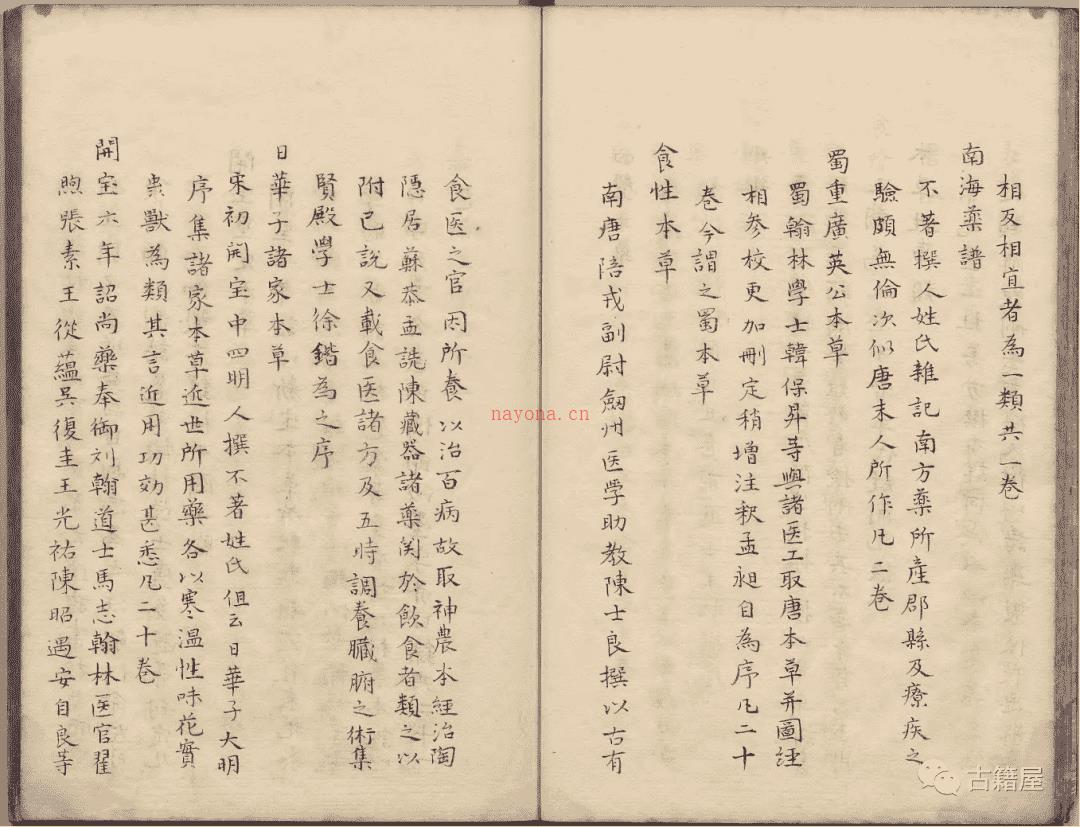 相反相宜者為一類共一卷
南海藥譜
不著撰人姓氏雜記南方藥所產郡縣及療疾之
驗頗無倫次似唐末人所作凡二卷
蜀重廣英公本草
蜀翰林學士韓保昇等與諸医工取唐本草并圖経
相參校更加刪定稍增注釈孟昶自為序凡二十
卷今謂之蜀本草
食性本草
南唐陪戎副尉劔州医学助教陳士良撰以古有
食医之官因所養以治百病故取神農本経治陶
隠居蘇恭孟詵陳藏器諸薬関於飲食者類之以
附已説又載食医諸方及五時調養臓腑之術集
賢殿学士徐鍇為之序
日華子諸家本草
宋初開宝中四明人撰不著姓氏但云日華子大明
序集諸家本草近世所用藥各以寒温性味花實
虫獣為類其言近用功効甚悉凡二十卷
開宝六年詔尚藥奉御刘翰道士馬志翰林医官翟
煦張素王從蘊吳復圭王光祐陳昭遇安自良等
nayona.cn
古籍屋